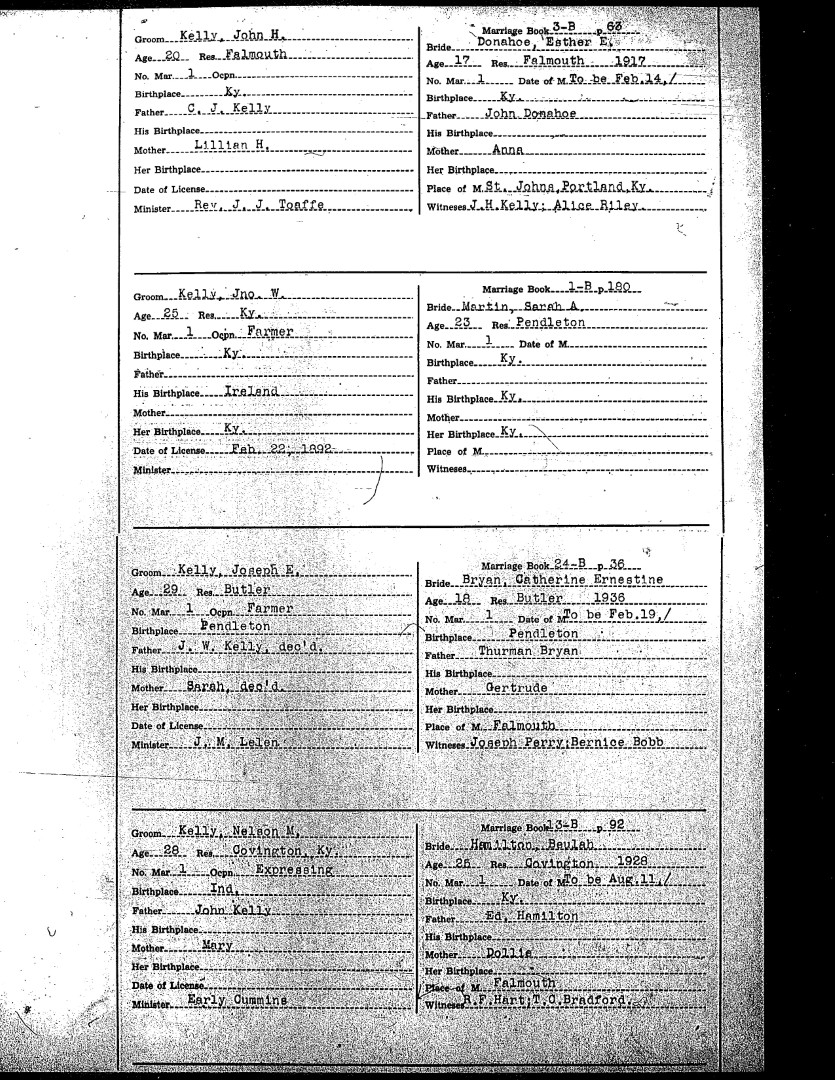 Groom Kelly, John H.
Age 20 Res Falmouth
No. Mar 1 Ocpn.
Birthplace Ky.
Father C. J. Kelly
His Birthplace
Mother Lillian H.
Her Birthplace
Date of License
Minister Rev. J. J. Toaffe
Marriage Book 3-B p 63
Bride Donahoe, Esther E.
Age 17 Res Falmouth 1917
No. Mar 1 Date of M To be Feb.14,/
Birthplace Ky.
Father John Donahoe
His Birthplace
Mother Anna
Her Birthplace
Place of M St. Johns, Portland, Ky.
Witneses J.H.Kelly; Alice Riley.
Groom Kelly, Jno. W.
Age 25 Res Ky.
No. Mar 1 Ocpn. Farmer
Birthplace Ky.
Father
His Birthplace Ireland
Mother
Her Birthplace Ky.
Date of License Feb. 22, 1892
Minister
Marriage Book 1-B p 180
Bride Martin, Sarah A
Age 23 Res Pendleton
No. Mar 1 Date of M
Birthplace Ky.
Father
His Birthplace Ky.
Mother
Her Birthplace Ky.
Place of M
Witneses
Groom Kelly, Joseph E.
Age 29 Res Butler
No. Mar 1 Ocpn. Farmer
Birthplace Pendleton
Father J. W. Kelly, dec'd.
His Birthplace
Mother Sarah, dec'd.
Her Birthplace
Date of License
Minister J. M. Lelen
Marriage Book 24-B p 36
Bride Bryan, Catherine Ernestine
Age 18 Res Butler 1936
No. Mar 1 Date of M To be Feb.19,/
Birthplace Pendleton
Father Thurman Bryan
His Birthplace
Mother Gertrude
Her Birthplace
Place of M Falmouth
Witneses Joseph Perry;Bernice Bobb
Groom Kelly, Nelson M.
Age 28 Res Covington, Ky.
No. Mar 1 Ocpn Expressing
Birthplace Ind.
Father John Kelly
His Birthplace
Mother Mary
Her Birthplace
Date of License
Minister Early Cummins
Marriage Book 13-B p 92
Bride Hamilton, Beulah
Age 25 Res Covington 1928
No. Mar 1 Date of M To be Aug.11,/
Birthplace Ky.
Father Ed. Hamilton
His Birthplace
Mother Dollie
Her Birthplace
Place of M Falmouth
Witneses R.F.Hart;T.C.Bradford.